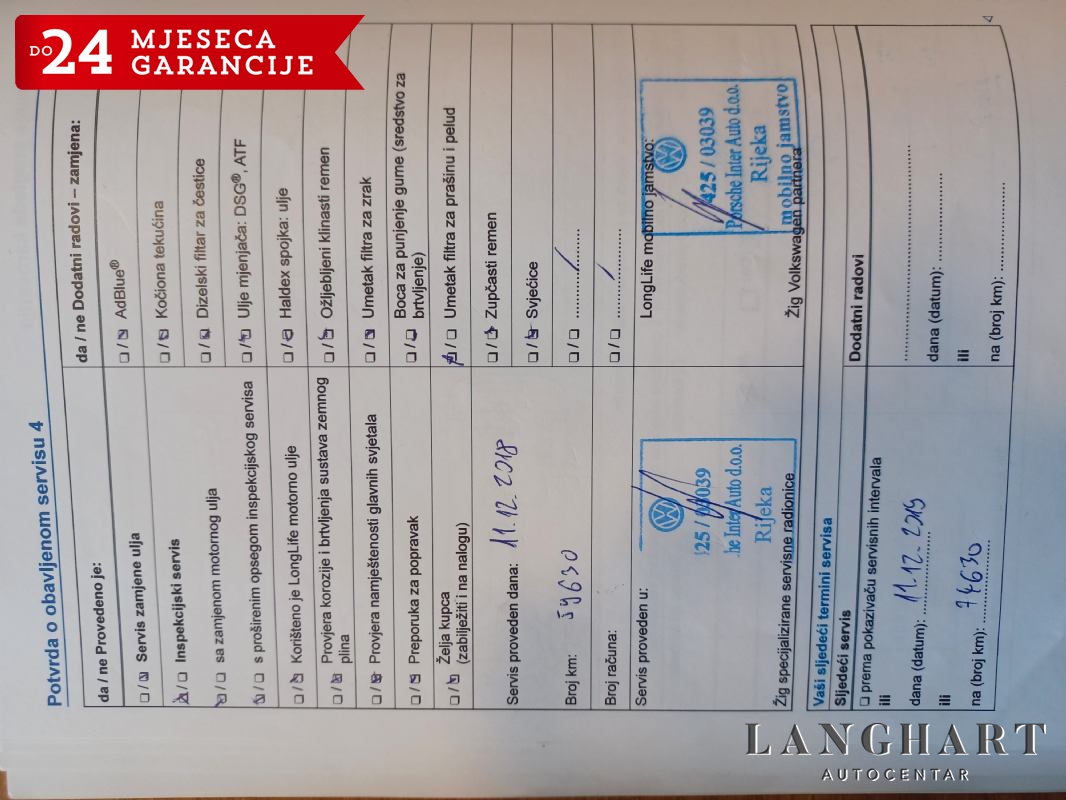 DO 24 MJESECA
GARANCIJE
Potvrda o obavljenom servisu 4
da / ne Provedeno je:
☐ / ☐ Servis zamjene ulja
☐ / ☐ Inspekcijski servis
☐ / ☐ sa zamjenom motornog ulja
☐ / ☐ s proširenim opsegom inspekcijskog servisa
☐ / ☐ Korišteno je LongLife motorno ulje
☐ / ☐ Provjera korozije i brtvljenja sustava zemnog
plina
☐ / ☐ Provjera namještenosti glavnih svjetala
☐ / ☐ Preporuka za popravak
☐ / ☐ Želja kupca
(zabilježiti i na nalogu)
Servis proveden dana: 11.12.2018
Broj km: 59630
Broj računa:
Servis proveden u:
25 / 03039
he Inter Auto d.o.o.
Rijeka
Žig specijalizirane servisne radionice
da / ne Dodatni radovi – zamjena:
☐ / ☐ AdBlue®
☐ / ☐ Kočiona tekućina
☐ / ☐ Dizelski filtar za čestice
☐ / ☐ Ulje mjenjača: DSG®, ATF
☐ / ☐ Haldex spojka: ulje
☐ / ☐ Ožljebljeni klinasti remen
☐ / ☐ Umetak filtra za zrak
☐ / ☐ Boca za punjenje gume (sredstvo za
brtvljenje)
☐ / ☐ Umetak filtra za prašinu i pelud
☐ / ☐ Zupčasti remen
☐ / ☐ Svjećice
☐ / ☐ ............/
☐ / ☐ ............/
LongLife mobilno jamstvo:
425 / 03039
Porsche Inter Auto d.o.o.
Rijeka
mobilno jamstvo
Žig Volkswagen partnera
Vaši sljedeći termini servisa
Sljedeći servis
☐ prema pokazivaču servisnih intervala
ili
dana (datum): 11.12.2019
ili
na (broj km): 74630
Dodatni radovi
dana (datum):
ili
na (broj km):
LANGHART
AUTOCENTAR